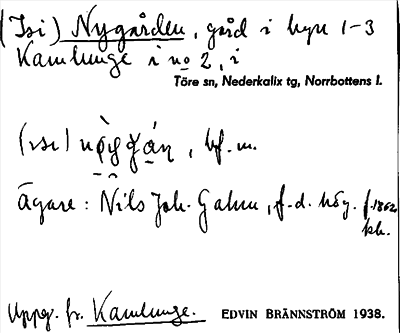 (Isi) Nygården, gård i byn 1-3
Kamlunge i no 2, i
Töre sn, Nederkalix tg, Norrbottens l.
bf. m.
Ägare: Nils Joh. Galm, f. d. häg. f. 1862
Uppg. fr. Kamlunge. EDVIN BRÄNNSTRÖM 1938.